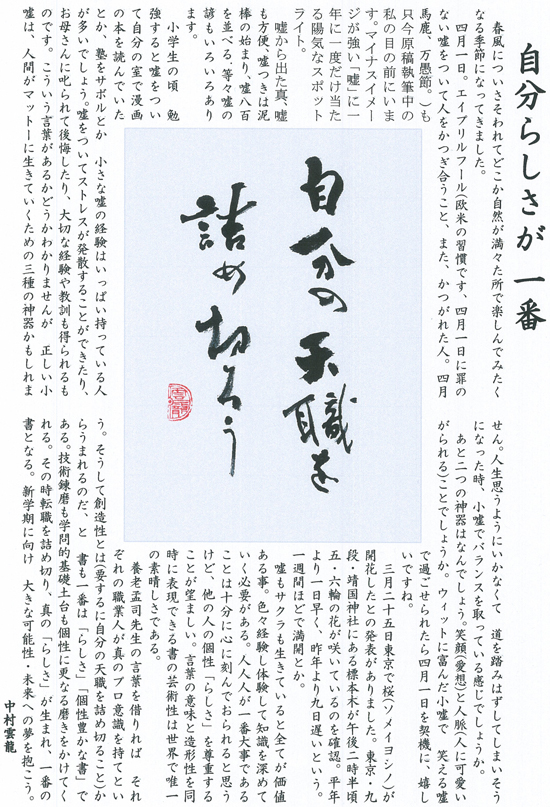 自分らしさが 一番
春風についさそわれてどこか自然が満々た所で楽しんでみたく
なる季節になってきました。
四月一日。エイプリルフール(欧米の習慣です、四月一日に罪の
ない嘘をついて人をかつぎ合うこと、また、かつがれた人。四月
馬鹿、万愚節。)も
只今原稿執筆中の
私の目の前にいま
す。マイナスイメー
ジが強い「嘘」に一
年に一度だけ当た
る陽気なスポット
ライト。
嘘から出た真、嘘
も方便、嘘つきは泥
棒の始まり、嘘八百
を並べる、等々嘘の
諺もいろいろあり
ます。
小学生の頃 勉
強すると嘘をつい
て自分の室で漫画
の本を読んでいた
とか、塾をサボルとか 小さな嘘の経験はいっぱい持っている人
が多いでしょう。嘘をついてストレスが発散することができたり、
お母さんに叱られて後悔したり、大切な経験や教訓も得られるも
のです。こういう言葉があるかどうかわかりませんが 正しい小
嘘は、人間がマットーに生きていくための三種の神器かもしれま
自分の天職を
詰め切ろう
せん。人生思うようにいかなくて 道を踏みはずしてしまいそう
になった時、小嘘でバランスを取っている感じでしょうか。
あと二つの神器はなんでしょう。笑顔(愛想)と人脈(人に可愛い
がられる)ことでしょうか。ウィットに富んだ小嘘で 笑える嘘
で過ごせられたら四月一日を契機に、嬉し
いですね。
三月二十五日東京で桜(ソメイヨシノ)が
開花したとの発表がありました。東京・九
段・靖国神社にある標本木が午後二時半頃
五・六輪の花が咲いているのを確認。平年
より一日早く、昨年より九日遅いという。
一週間ほどで満開とか。
嘘もサクラも生きていると全てが価値
ある事。色々経験し体験して知識を深めて
いく必要がある。人人人が一番大事である
ことは十分に心に刻んでおられると思う
けど、他の人の個性「らしさ」を尊重する
ことが望ましい。言葉の意味と造形性を同
時に表現できる書の芸術性は世界で唯一
の素晴しさである。
養老孟司先生の言葉を借りれば それ
ぞれの職業人が真のプロ意識を持てとい
う。そうして創造性とは(要するに自分の天職を詰め切ること)か
らうまれるのだ、と 書も一番は「らしさ」「個性豊かな書」で
ある。技術錬磨も学問的基礎土台も個性に更なる磨きをかけてく
れる。その時転職を詰め切り、真の「らしさ」が生まれ、一番の
書となる。新学期に向け 大きな可能性・未来への夢を抱こう。
中村雲龍